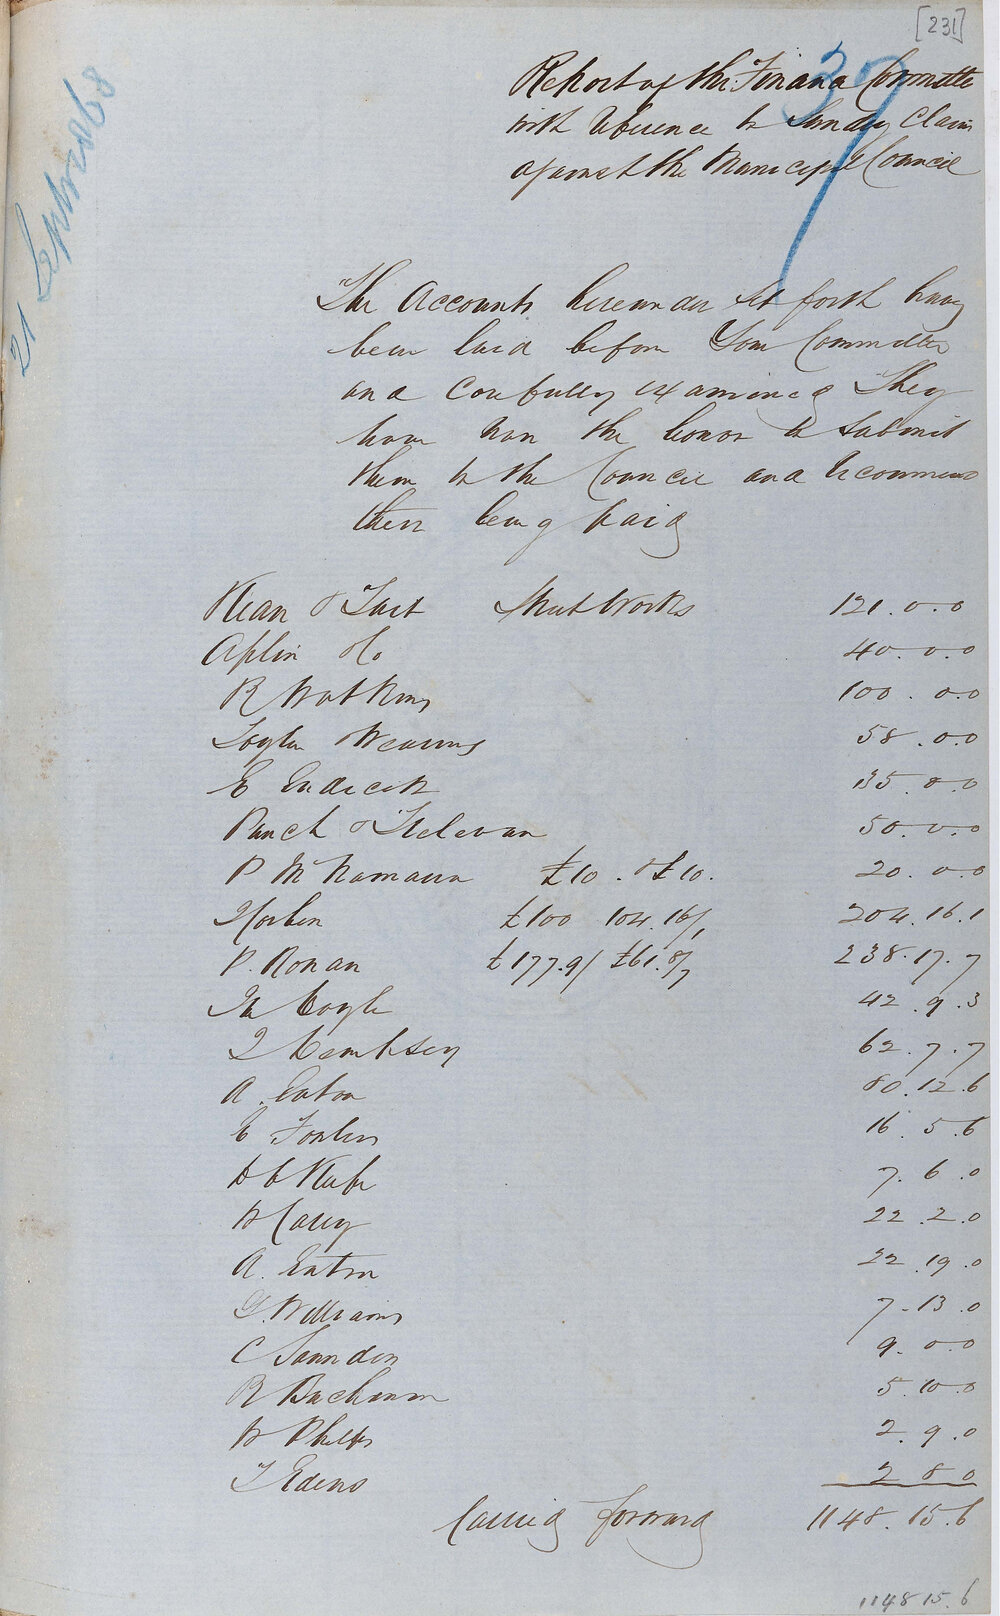 [231]
37
21 Septr 1868
Report of the Finance Committee
with reference to Sundry Claims
against the Municipal Council
The Accounts hereunder set forth having
been laid before Your Committee
and Carefully examined They
have now the honor to submit
them to the Council and recommend
their being paid
Kean & Tait Street Works 121.0.0
Aplin & Co 40.0.0
R Watkins 100.0.0
Taylor & Wearing 58.0.0
E Endicott 35.0.0
Panch & Trelevan 50.0.0
P McNamara £10. & £10. 20.0.0
£100 104.16/1 204.16.1
P. Ronan £177.9/ £61.8/7 238.17.7
Coyle 42.9.3
Dempsey 62.7.7
A. Eaton 80.12.6
E Fowler 16.5.6
Keefe 7.6.0
W Carey 22.2.0
A. Eaton 22.19.0
G. Williams 7.13.0
C Saunders 9.0.0
R Buchanan 5.10.0
W Phelps 2.9.0
T Edens 2 8 0
Carried forward 1148.15.6
1148 15.6